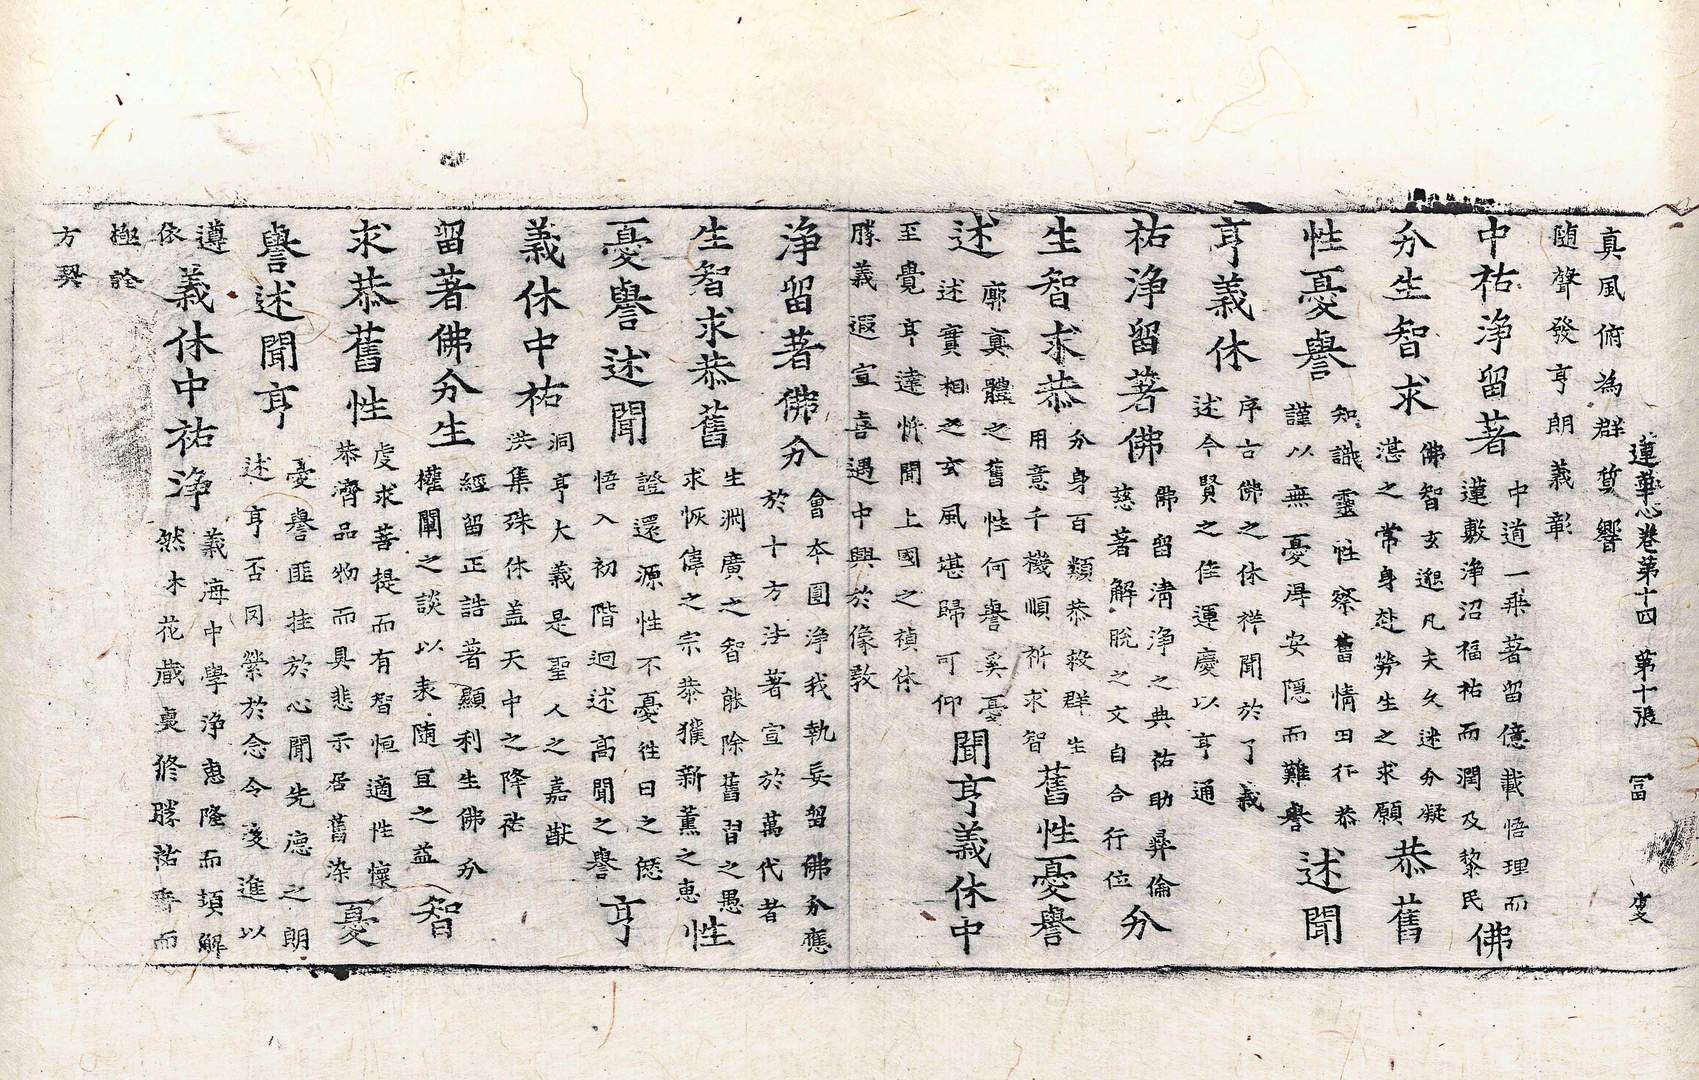 真風俯為群貲響
蓮華心卷第十四 第十張 冨
隨聲發亨朗義彰
中祐淨留著
中道一乘著留億載悟理而
蓮敷淨沼福祐而潤及黎民
佛
分生智求
佛智玄邈凡夫久迷分凝
湛之常身赴勞生之求願
恭舊
性憂譽
知識靈性察舊情田行恭
謹以無憂得安隱而難譽
述聞
亨義休
序古佛之休祥聞於了義
述今賢之佳運慶以亨通
祐淨留著佛
佛留清淨之典祐助彝倫
慈著解脫之文自合行位
分
生智求恭
分身百類恭投群生
用意千機順祈求智
舊性憂譽
述
廓真體之舊性何譽奚憂
述實相之玄風堪歸可仰
聞亨義休中
至覺亨達忻聞上國之禎休
勝義遐宣喜遇中興於像教
淨留著佛分
會本圓淨我執妄留佛分應
於十方涉著宣於萬代者
生智求恭舊
生淵廣之智能除舊習之愚
求恢偉之宗恭獲新薰之惠
性
憂譽述聞
證還源性不憂徃日之愆
悟入初階迴述高聞之譽
亨
義休中祐
洞亨大義是聖人之嘉猷
洪集殊休盖天中之降祐
留著佛分生
經留正誥著顯利生佛分
權闡之談以表隨宜之益
智
求恭舊性
虔求菩提而有智恒適性懷
恭濟品物而具悲示居舊染
憂
譽述聞亨
憂譽匪挂於心聞先德之朗
述亨否罔縈於念令後進以
遵
依
義休中祐淨
義海中學淨惠隆而頓解
然木花歲裏修勝祐齊而
極詮
方契